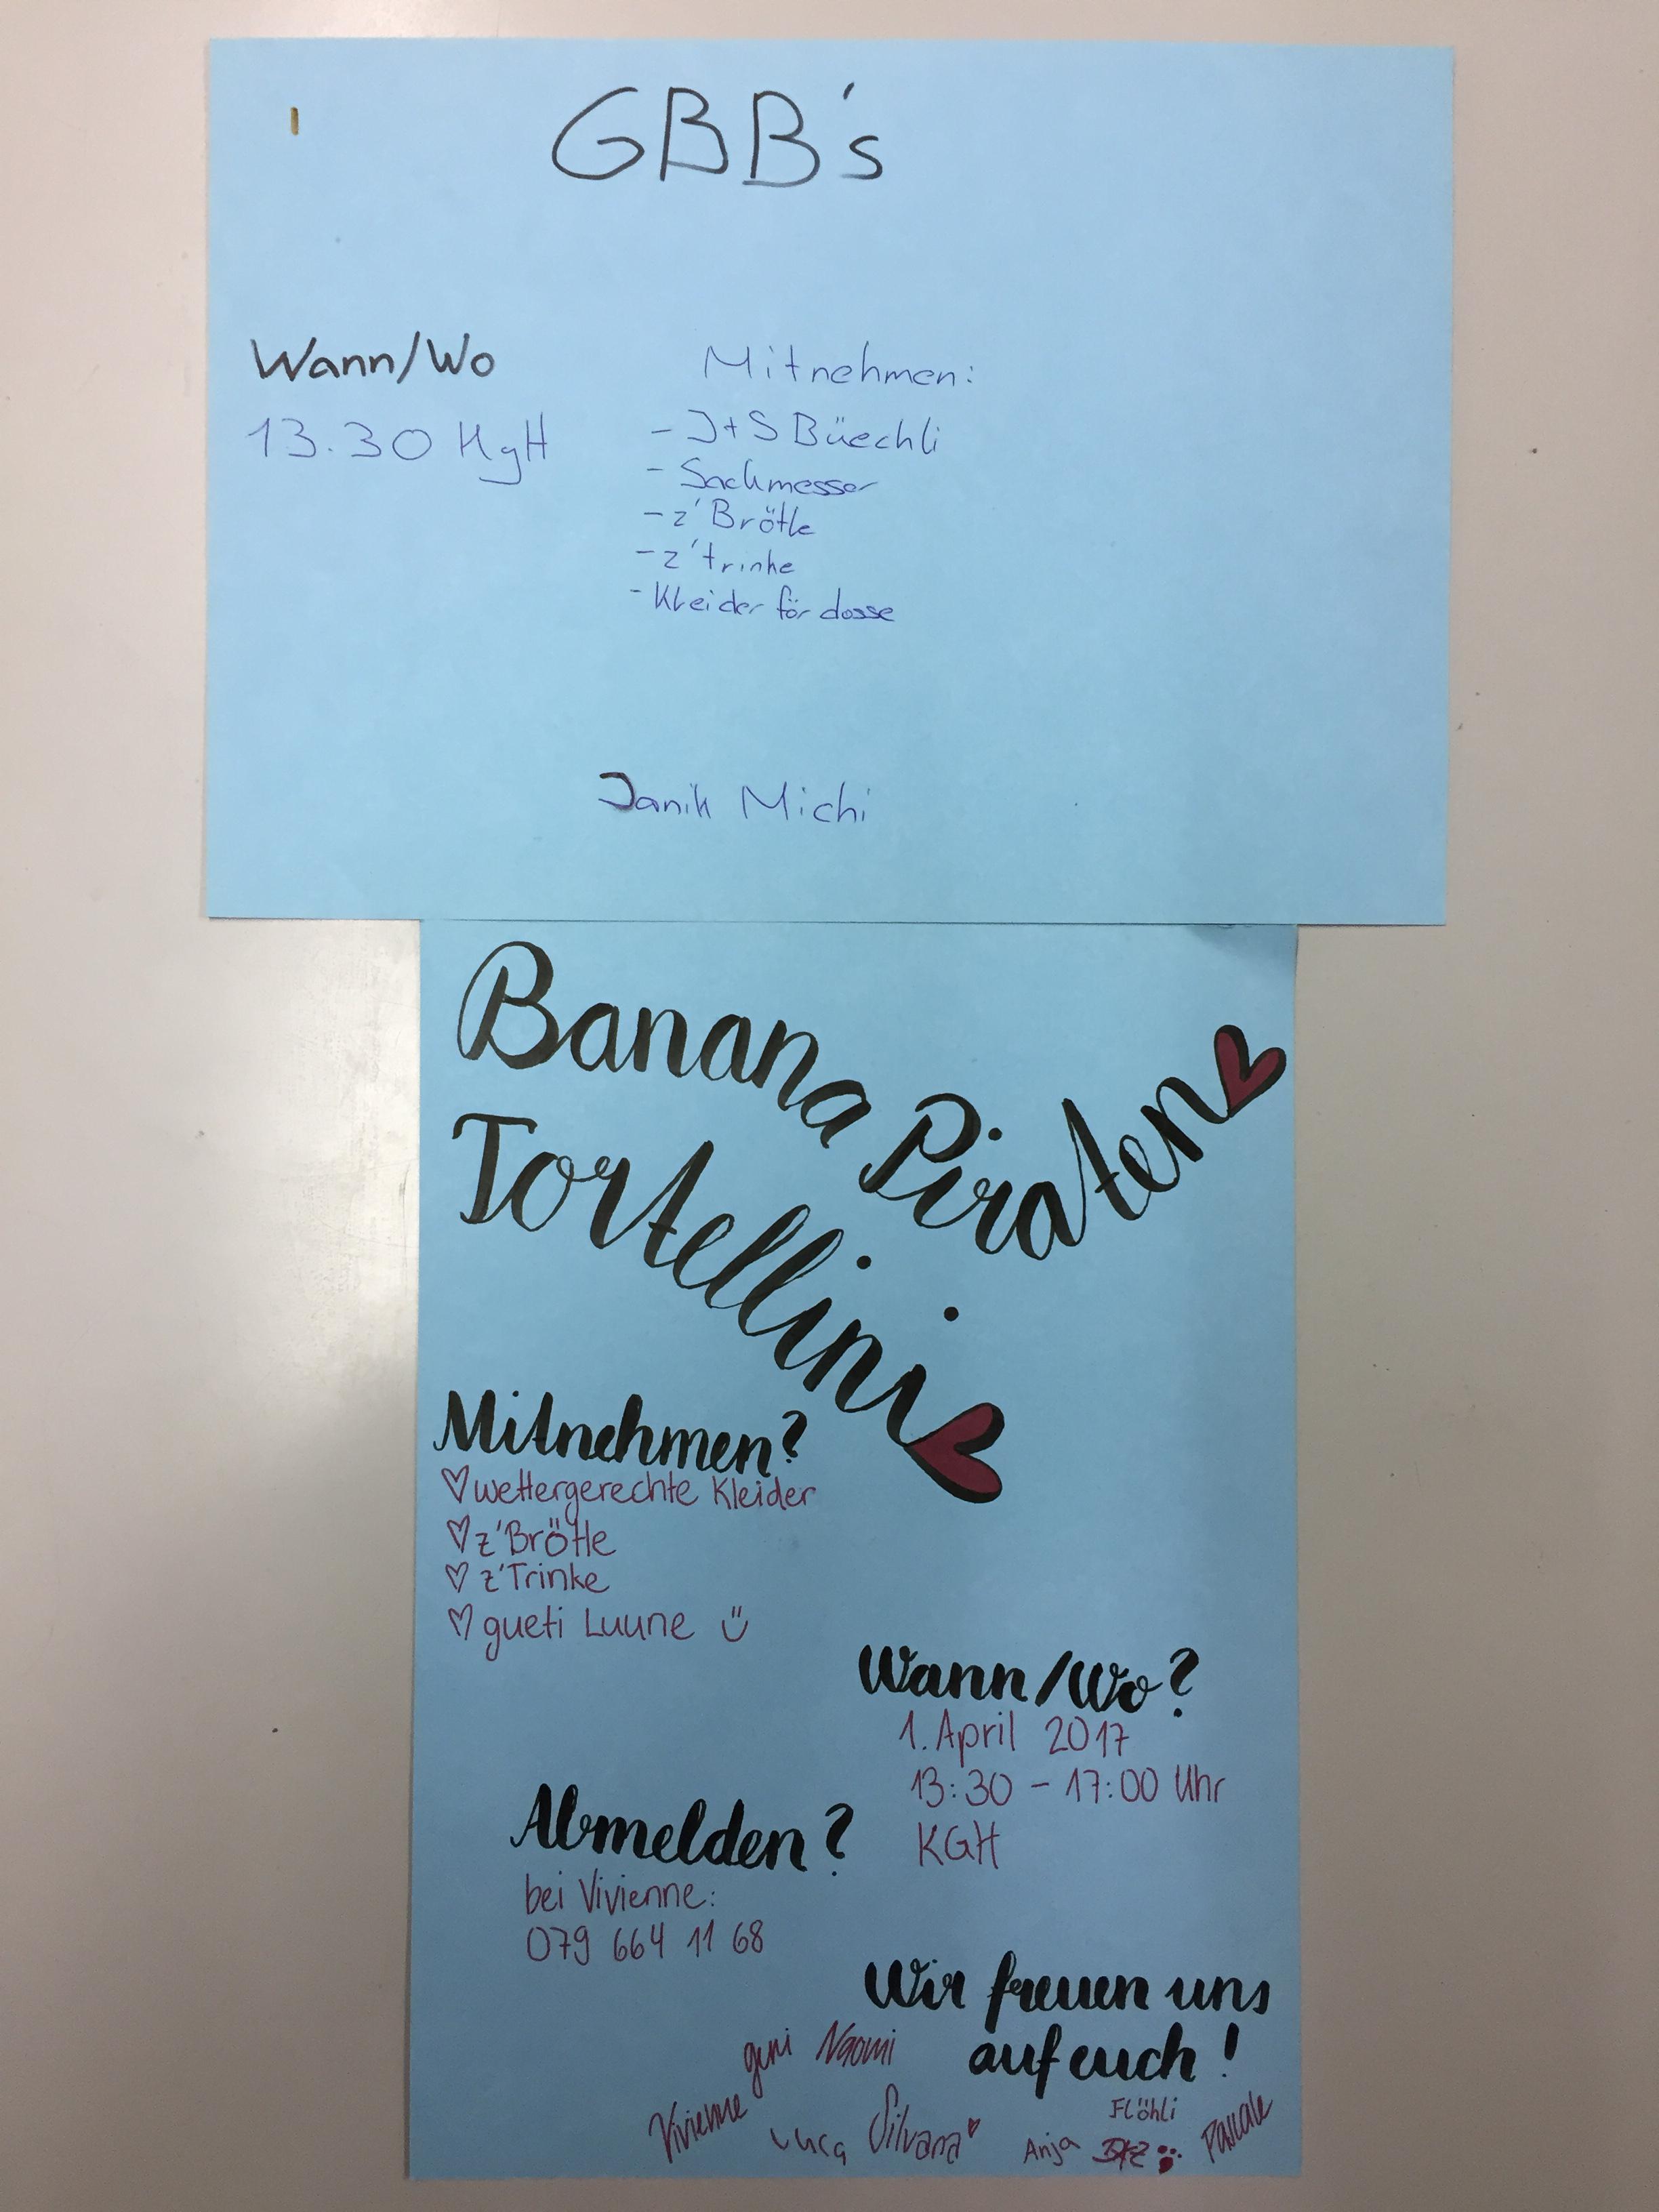 GBB's
Wann/Wo
13.30 KgH
Mitnehmen:
- J+S Büechli
- Sackmesser
- z'Brötle
- z'trinke
- Kleider för dosse
Janik Michi
Banana Piraten
Tortellini
Mitnehmen?
wettergerechte Kleider
z'Brötle
z'Trinke
gueti Luune
Wann/Wo?
1. April 2017
13:30 - 17:00 Uhr
KGH
Abmelden?
bei Vivienne:
079 664 11 68
Wir freuen uns
auf euch!
Naomi
Vivienne
Luca
Silvana
Anja
Flöhli
Pascale